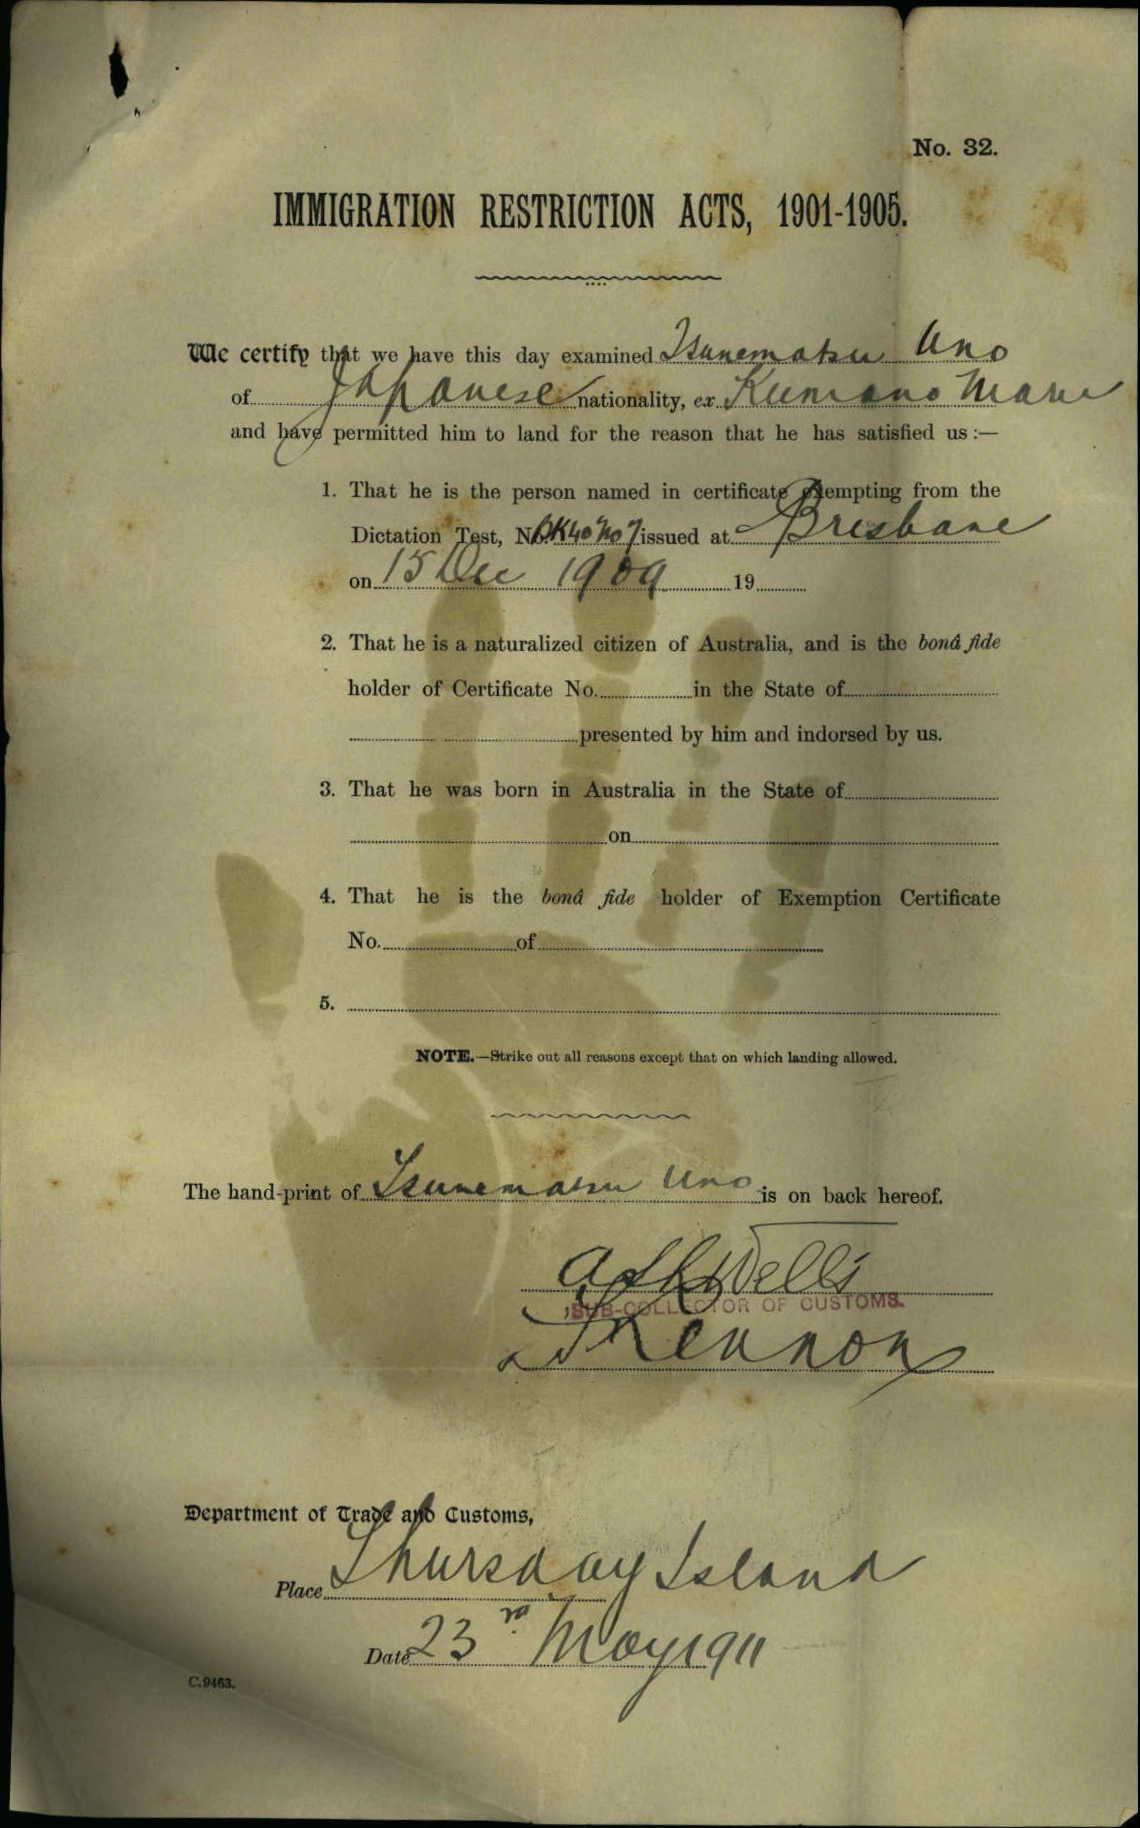 No. 32.
IMMIGRATION RESTRICTION ACTS, 1901-1905.
We certify that we have this day examined Tsunematsu Uno
of Japanese nationality, ex Kumano Maru
and have permitted him to land for the reason that he has satisfied us :—
1. That he is the person named in certificate exempting from the
Dictation Test, No. BK 40 No 7 issued at Brisbane
on 15 Dec 1909 19
2. That he is a naturalized citizen of Australia, and is the bonâ fide
holder of Certificate No. in the State of
presented by him and indorsed by us.
3. That he was born in Australia in the State of
on
4. That he is the bonâ fide holder of Exemption Certificate
No. of
5.
NOTE.—Strike out all reasons except that on which landing allowed.
The hand-print of Tsunematsu Uno is on back hereof.
Wells
SUB-COLLECTOR OF CUSTOMS.
Lennon
Department of Trade and Customs,
Place Thursday Island
Date 23rd May 1911
C.9463.